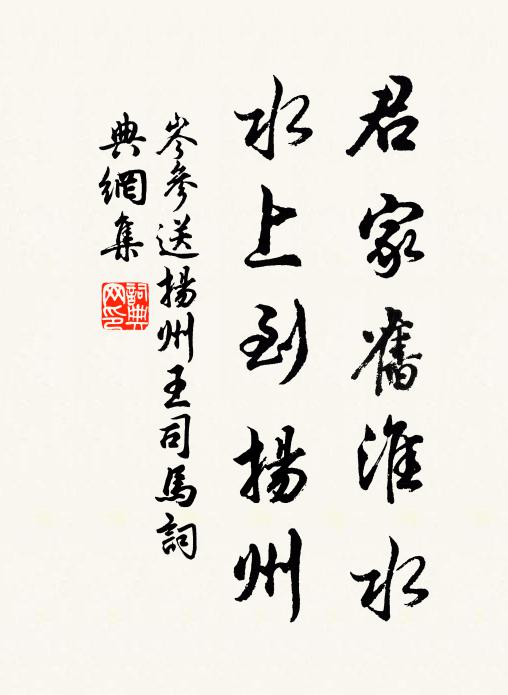 君家舊淮水
水上到揚州
岑參送揚州王司馬詞
典網集
詞典
网印